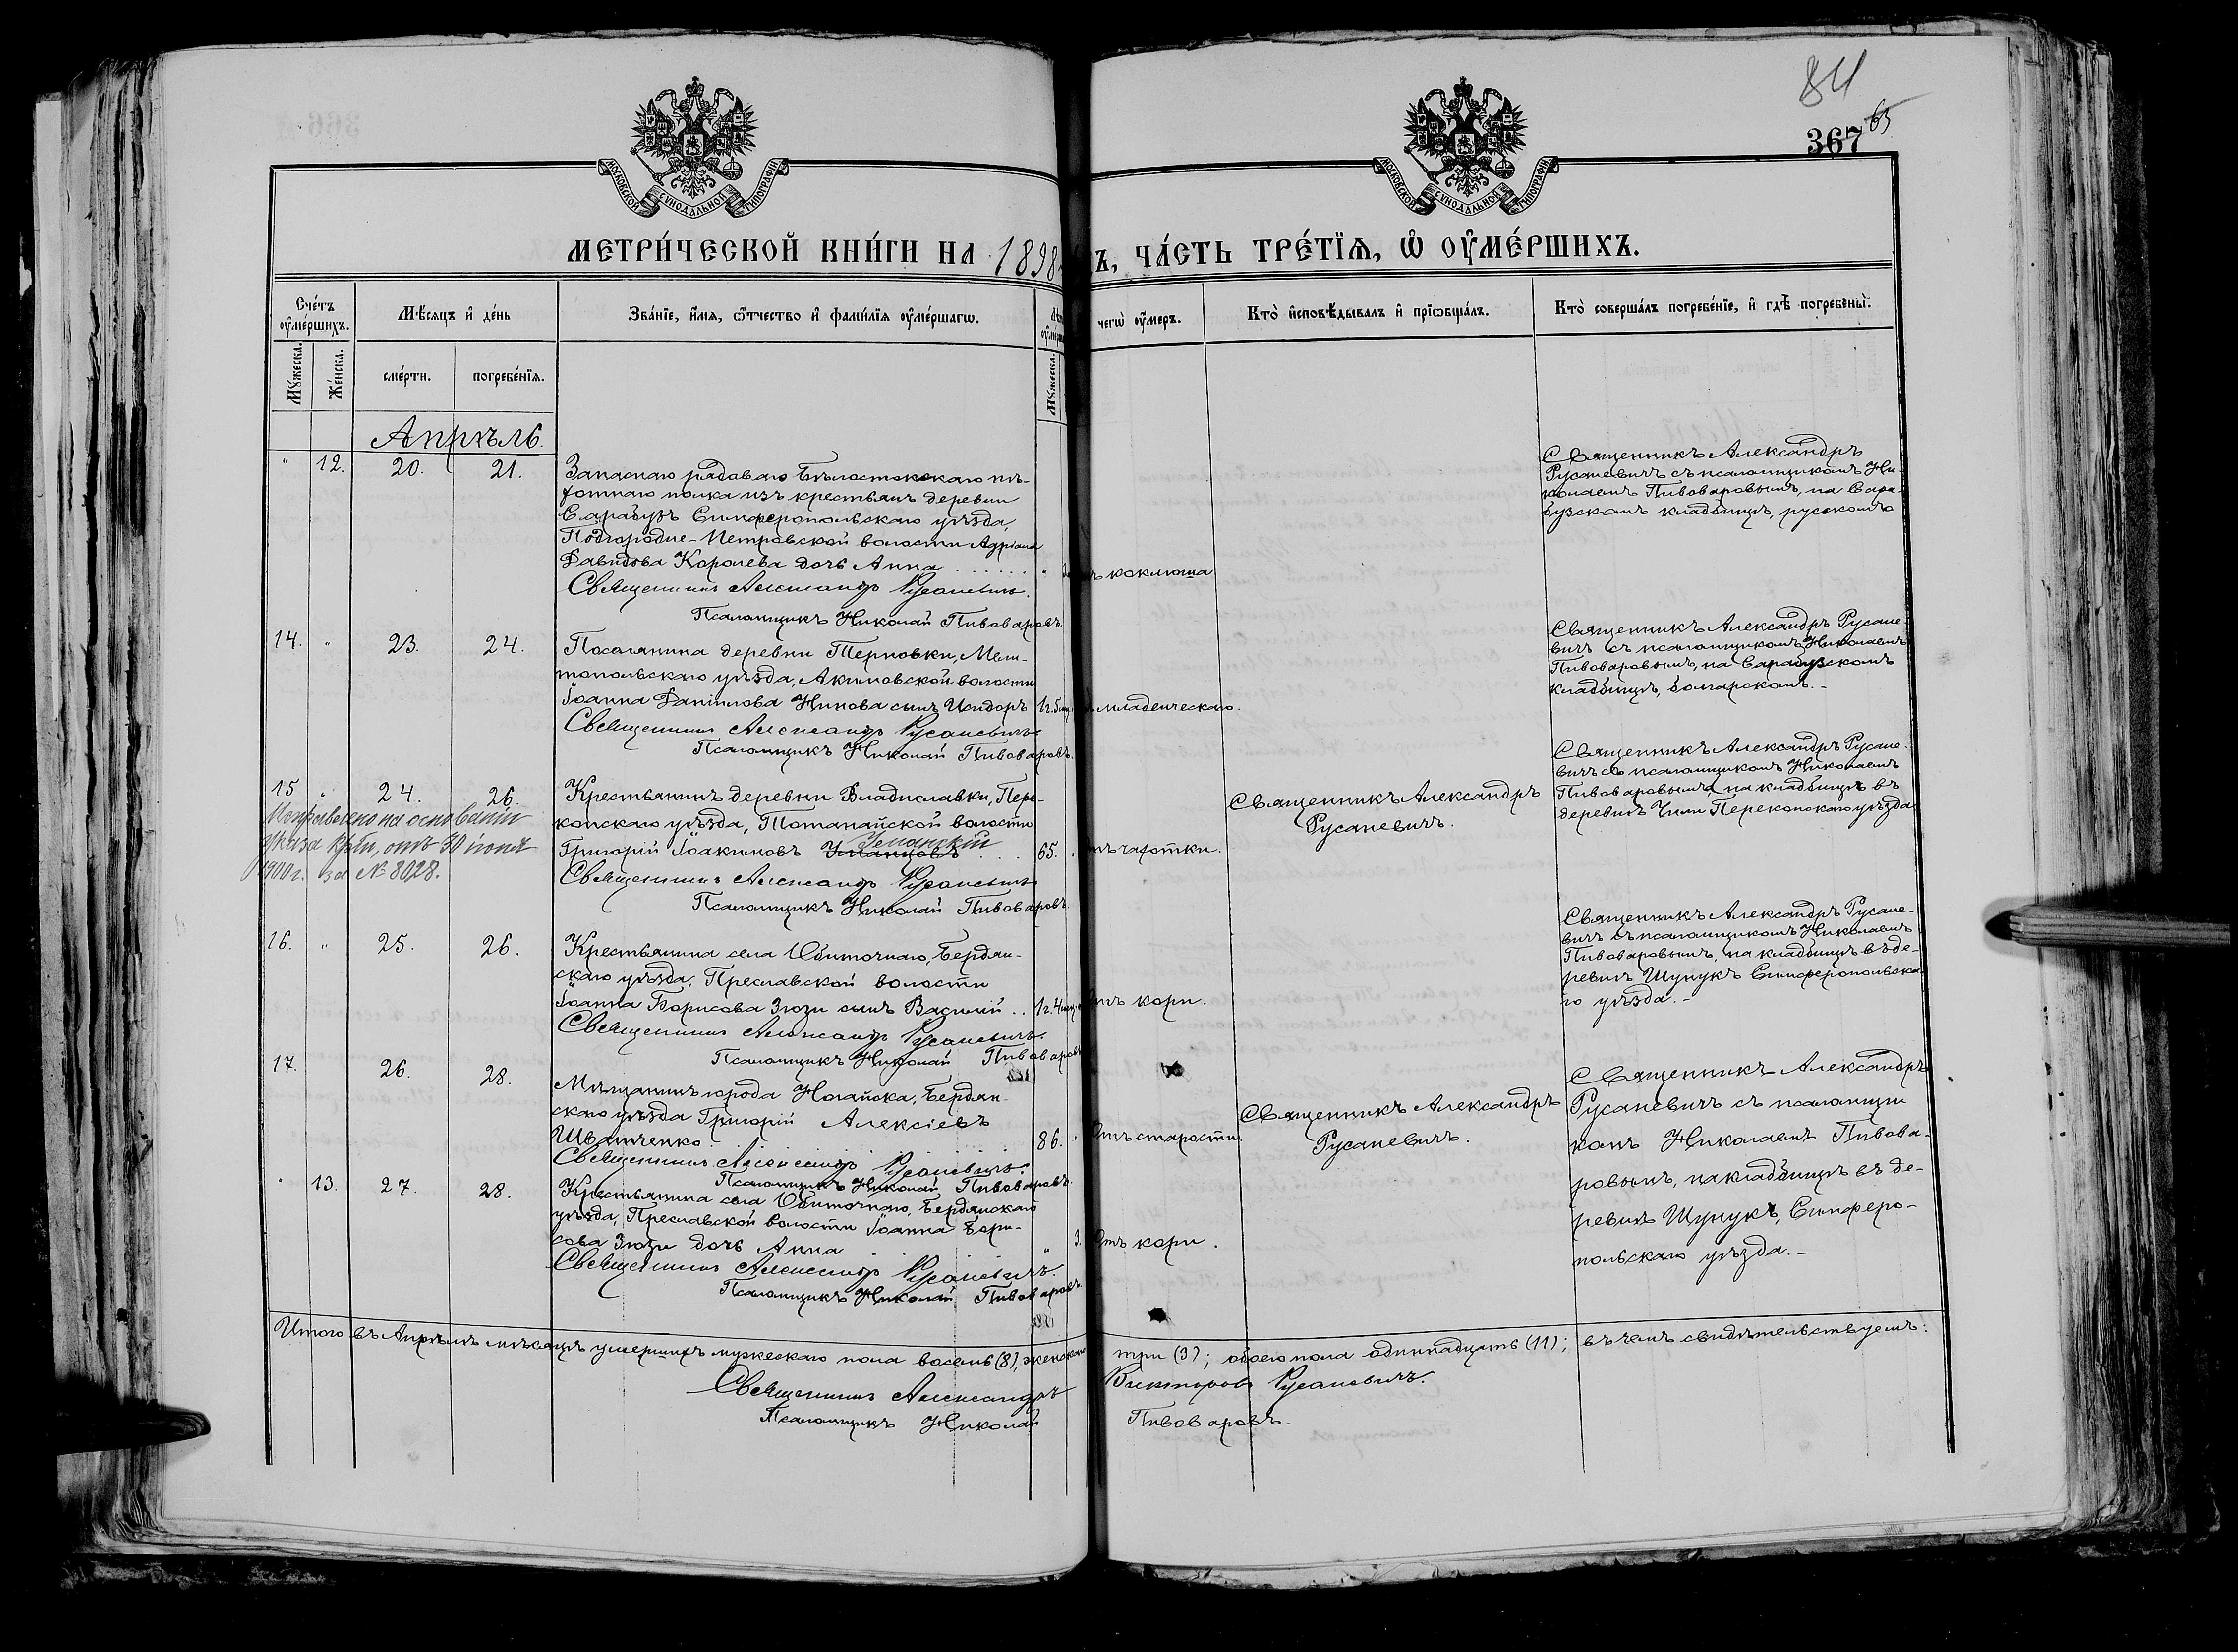 84
367 65
МОСКОВСКОЙ СУНОДАЛЬНОЙ ТИПОГРАФІИ
МОСКОВСКОЙ СУНОДАЛЬНОЙ ТИПОГРАФІИ
МЕТРИ́ЧЕСКОЙ КНИ́ГИ НА 1898 Ъ, ЧА́СТЬ ТРЕ́ТЇѦ, Ѽ ОУ҆МЕ́РШИХЪ.
Сче́тъ оу҆ме́ршихъ.
Мѣ́сяцъ и҆ де́нь
Зва́нїе, и҆́мя, ѻ҆́тчество и҆ фами́лїя оу҆ме́ршагѡ.
чегѡ̀ оу҆́меръ.
Кто̀ и҆сповѣ́дывалъ и҆ прїѡбща́лъ.
Кто̀ соверша́лъ погребе́нїе, и҆ гдѣ̀ погребены̀.
Мꙋ́жеска.
Же́нска.
сме́рти.
погребе́нїя.
Мꙋ́жеска.
Апрѣль.
" 12. 20. 21.
Запаснаго рядоваго Бѣлостокскаго пѣ-
хотнаго полка изъ крестьянъ деревни
Сарабузъ Симферопольскаго уѣзда,
Подгородне-Петровской волости Адріана
Давидова Королева дочь Анна . . . . . . "
ъ коклюша
Священникъ Александръ Русаневичъ.
Псаломщикъ Николай Пивоваровъ.
Священникъ Александръ
Русаневичъ съ псаломщикомъ Ни-
колаемъ Пивоваровымъ, на Сара-
бузскомъ кладбищѣ, русскомъ
14. " 23. 24.
Поселянина деревни Терновки, Мели-
топольскаго уѣзда, Акимовской волости
Іоанна Даніилова Никова сынъ Исидоръ 1г. 5мц.
младенческаго.
Священникъ Александръ Русаневичъ
Псаломщикъ Николай Пивоваровъ.
Священникъ Александръ Русане-
вичъ съ псаломщикомъ Николаемъ
Пивоваровымъ, на Сарабузскомъ
кладбищѣ, болгарскомъ.-
15 " 24. 26.
Исправлено на основаніи
Указа от 30 іюня
1900 г. за № 8028.
Крестьянинъ деревни Владиславки, Пере-
копскаго уѣзда, Тотанайской волости
Григорій Іоакимовъ Уманцовъ Уманскій . . . 65.
тъ чахотки.
Священникъ Александръ Русаневичъ
Псаломщикъ Николай Пивоваровъ.
Священникъ Александръ
Русаневичъ.
Священникъ Александръ Русане-
вичъ съ псаломщикомъ Николаемъ
Пивоваровымъ, на кладбищѣ въ
деревнѣ Перекопскаго уѣзда
16. " 25. 26.
Крестьянина села Обиточнаго, Бердян-
скаго уѣзда, Преславской волости
Іоанна Борисова Зюзи сынъ Василій . . 1г. 4мц.
тъ кори.
Священникъ Александръ Русаневичъ.
Псаломщикъ Николай Пивоваровъ
Священникъ Александръ Русане-
вичъ съ псаломщикомъ Николаемъ
Пивоваровымъ, на кладбищѣ въ де-
ревнѣ Шунукъ Симферопольска-
го уѣзда.-
17. 26. 28.
Мѣщанинъ города Ногайска, Бердян-
скаго уѣзда Григорій Алексіевъ
Шватченко 86.
Отъ старости.
Священникъ Александръ Русаневичъ.
Псаломщикъ Николай Пивоваровъ.
Священникъ Александръ
Русаневичъ.
Священникъ Александръ
Русаневичъ съ псаломщи
комъ Николаемъ Пивова-
ровымъ, на кладбищѣ въ де-
ревнѣ Шунукъ, Симферо-
польскаго уѣзда.-
" 13. 27. 28.
Крестьянина села Обиточнаго, Бердянскаго
уѣзда, Преславской волости Іоанна Бори-
сова Зюзи дочь Анна " 3.
Отъ кори.
Священникъ Александръ Русаневичъ.
Псаломщикъ Николай Пивоваровъ.
Итого въ Апрѣлѣ мѣсяцѣ умершихъ мужескаго пола восемь (8), женскаго три (3); обоего пола одиннадцать (11); въ чемъ свидѣтельствуемъ:
Священникъ Александръ Викторовъ Русаневичъ.
Псаломщикъ Николай Пивоваровъ.